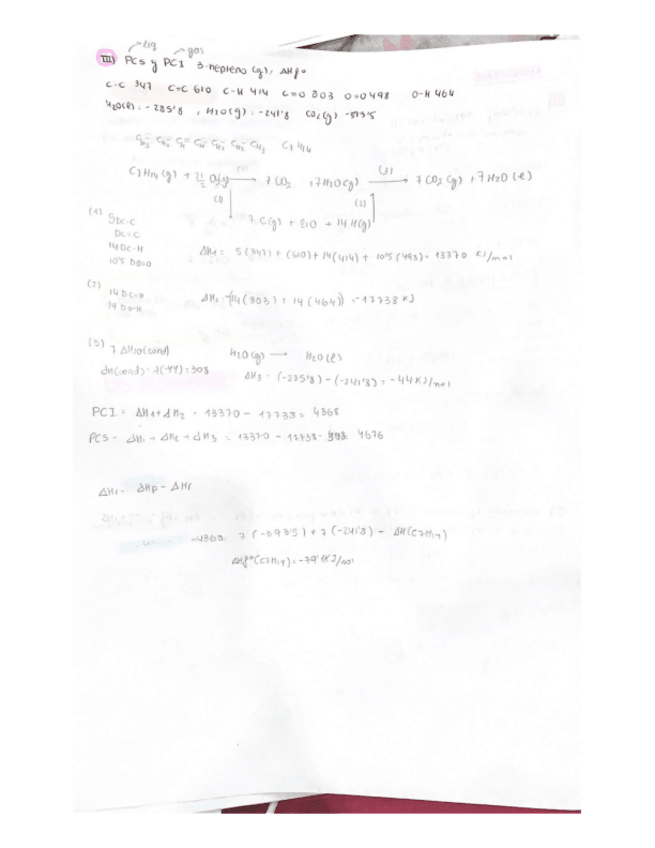 liq gas
III) PCS y PCI 3-hepteno (g), ΔHf°
C-C 347 C=C 610 C-H 414 C=O 803 O=O 498 O-H 464
H2O(l) = -285'8 , H2O(g) = -241'8 CO2(g) -393'5
CH3- CH2- CH= CH- CH2- CH2- CH3 C7H14
C7H14(g) + 21/2 O2(g) → 7CO2 + 7H2O(g) (3) → 7CO2(g) + 7H2O(l)
(1) (2)
7C(g) + 21O + 14H(g)
(1) 5DC-C
DC=C
14DC-H
10'5 DO=O
ΔH1 = 5(347) + (610) + 14(414) + 10'5(498) = 13370 KJ/mol
(2) 14DC=O
14DO-H
ΔH2 = -(14(803) + 14(464)) = -17738 KJ
(3) 7ΔH2O(cond)
ΔH(cond) = 7(-44) = 308
H2O(g) → H2O(l)
ΔH3 = (-285'8) - (-241'8) = -44KJ/mol
PCI = ΔH1 + ΔH2 = 13370 - 17738 = 4368
PCS = ΔH1 + ΔH2 + ΔH3 = 13370 - 17738 - 308 4676
ΔHr = ΔHp - ΔHr
-4368 = 7(-393'5) + 7(-241'8) - ΔH(C7H14)
ΔHf°(C7H14) = -79'1KJ/mol